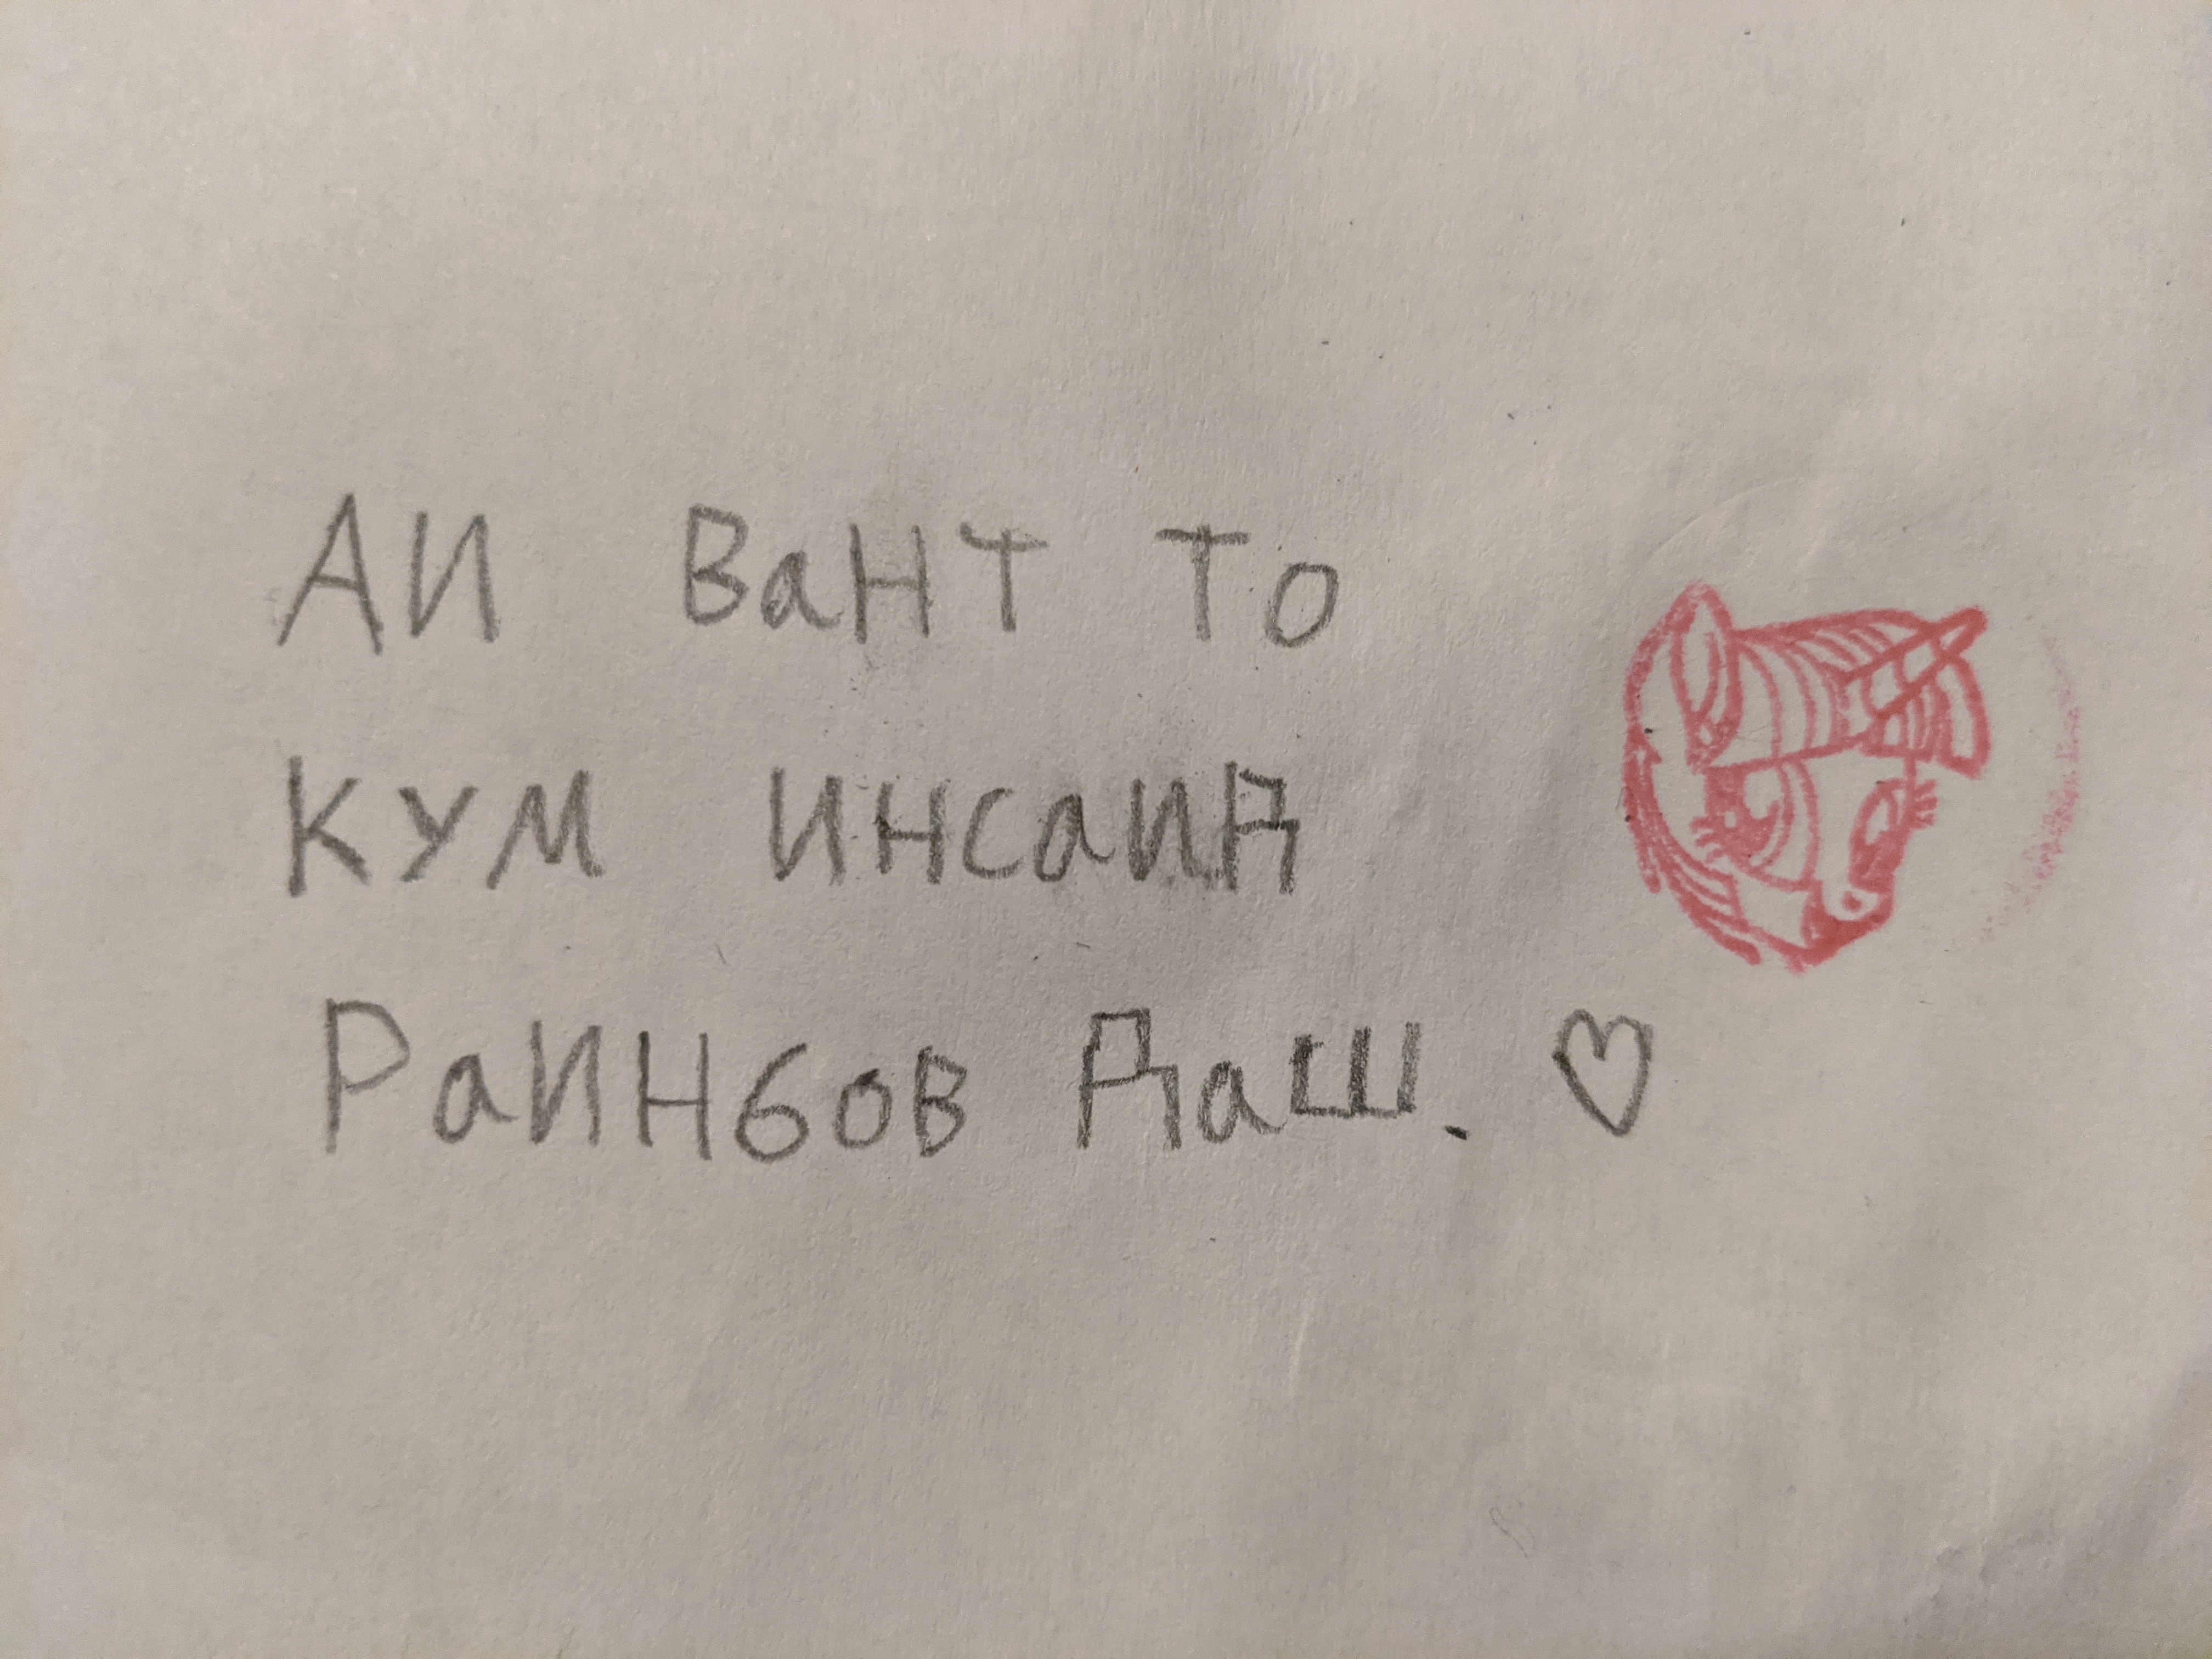 Аи Вант то
кум инсаид
Раинбов Даш. ♡